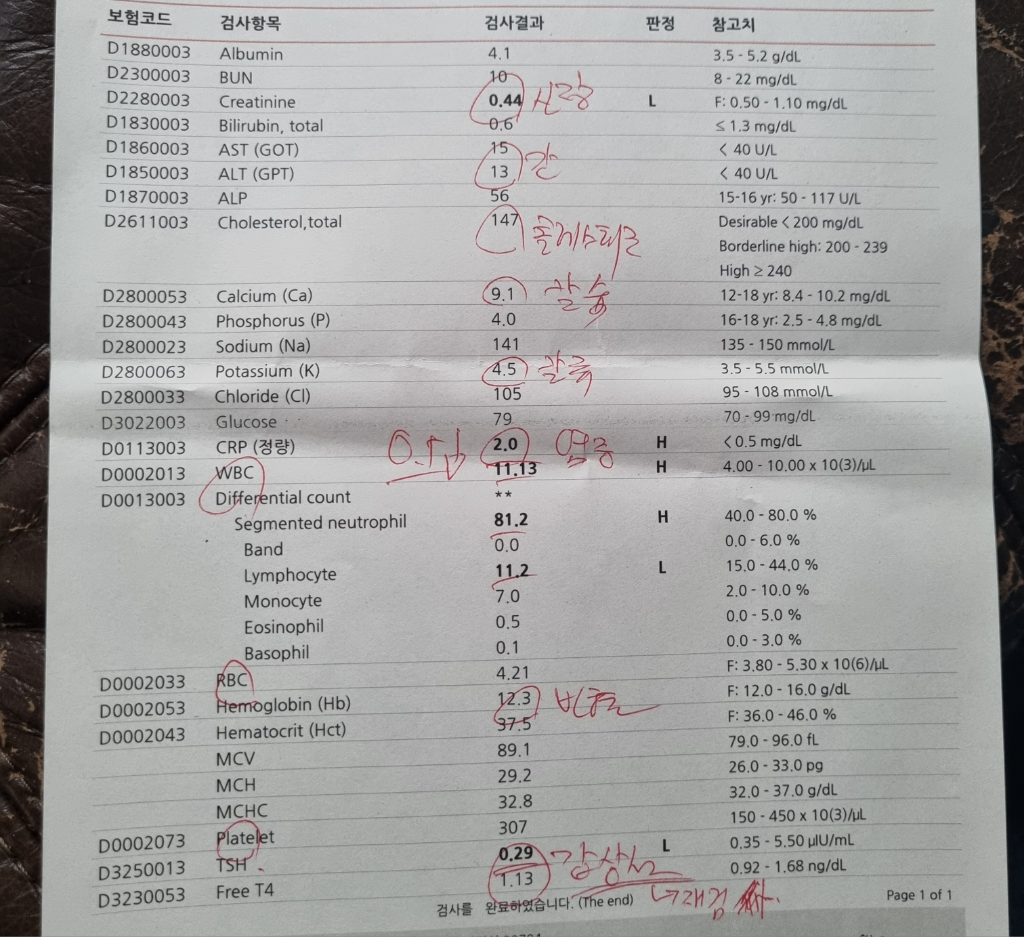 보험코드 검사항목 검사결과 판정 참고치
D1880003 Albumin 4.1 3.5 - 5.2 g/dL
D2300003 BUN 10 8 - 22 mg/dL
D2280003 Creatinine 0.44 신장 L F: 0.50 - 1.10 mg/dL
D1830003 Bilirubin, total 0.6 ≤ 1.3 mg/dL
D1860003 AST (GOT) 15 < 40 U/L
D1850003 ALT (GPT) 13 간 < 40 U/L
D1870003 ALP 56 15-16 yr: 50 - 117 U/L
D2611003 Cholesterol,total 147 콜레스테롤 Desirable < 200 mg/dL
Borderline high: 200 - 239
High ≥ 240
D2800053 Calcium (Ca) 9.1 칼슘 12-18 yr: 8.4 - 10.2 mg/dL
D2800043 Phosphorus (P) 4.0 16-18 yr: 2.5 - 4.8 mg/dL
D2800023 Sodium (Na) 141 135 - 150 mmol/L
D2800063 Potassium (K) 4.5 칼륨 3.5 - 5.5 mmol/L
D2800033 Chloride (Cl) 105 95 - 108 mmol/L
D3022003 Glucose 79 70 - 99 mg/dL
D0113003 CRP (정량) 2.0 염증 H < 0.5 mg/dL
D0002013 WBC 11.13 H 4.00 - 10.00 x 10(3)/µL
D0013003 Differential count **
Segmented neutrophil 81.2 H 40.0 - 80.0 %
Band 0.0 0.0 - 6.0 %
Lymphocyte 11.2 L 15.0 - 44.0 %
Monocyte 7.0 2.0 - 10.0 %
Eosinophil 0.5 0.0 - 5.0 %
Basophil 0.1 0.0 - 3.0 %
D0002033 RBC 4.21 F: 3.80 - 5.30 x 10(6)/µL
D0002053 Hemoglobin (Hb) 12.3 빈혈 F: 12.0 - 16.0 g/dL
D0002043 Hematocrit (Hct) 37.5 F: 36.0 - 46.0 %
MCV 89.1 79.0 - 96.0 fL
MCH 29.2 26.0 - 33.0 pg
MCHC 32.8 32.0 - 37.0 g/dL
D0002073 Platelet 307 150 - 450 x 10(3)/µL
D3250013 TSH 0.29 갑상선 L 0.35 - 5.50 µIU/mL
D3230053 Free T4 1.13 0.92 - 1.68 ng/dL
검사를 완료하였습니다. (The end) 재검 Page 1 of 1